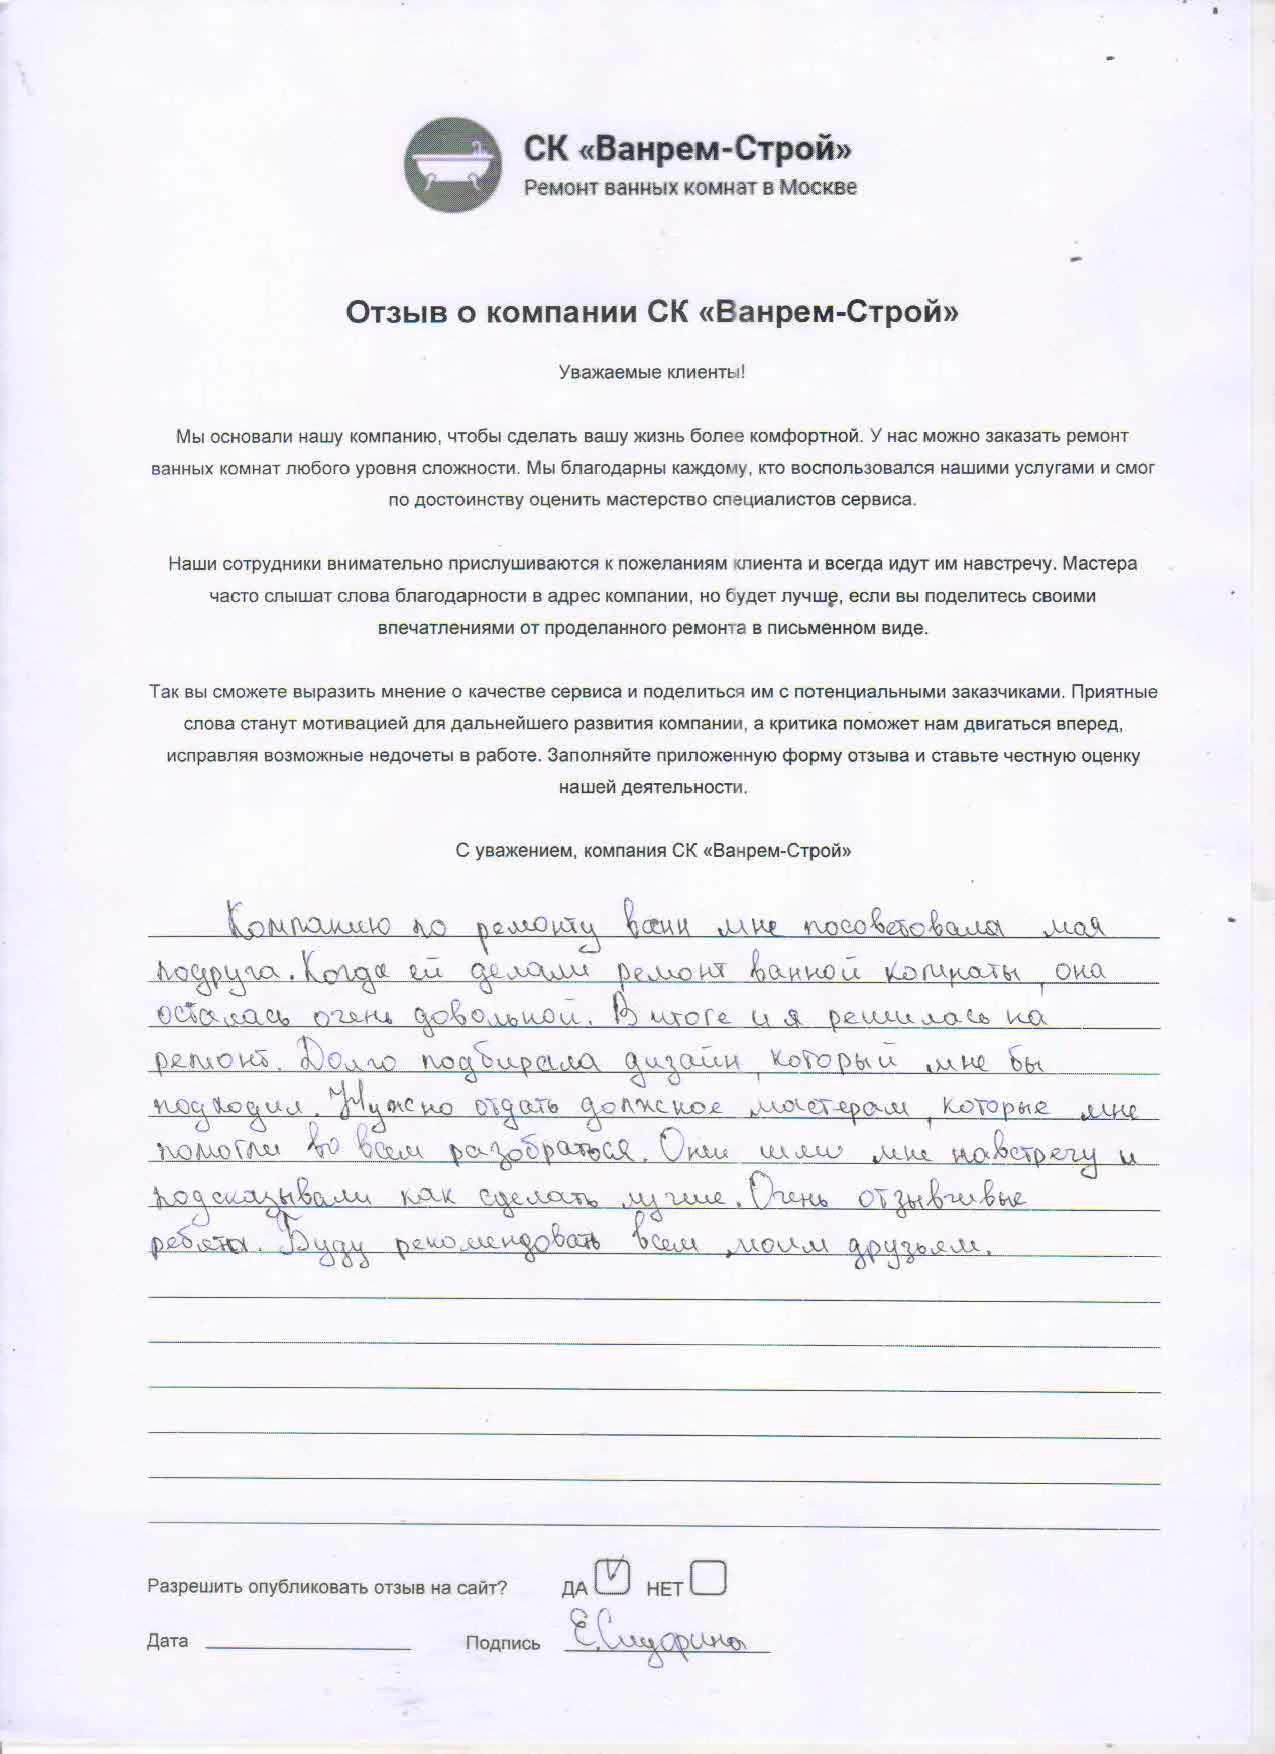 СК «Ванрем-Строй»
Ремонт ванных комнат в Москве
Отзыв о компании СК «Ванрем-Строй»
Уважаемые клиенты!
Мы основали нашу компанию, чтобы сделать вашу жизнь более комфортной. У нас можно заказать ремонт
ванных комнат любого уровня сложности. Мы благодарны каждому, кто воспользовался нашими услугами и смог
по достоинству оценить мастерство специалистов сервиса.
Наши сотрудники внимательно прислушиваются к пожеланиям клиента и всегда идут им навстречу. Мастера
часто слышат слова благодарности в адрес компании, но будет лучше, если вы поделитесь своими
впечатлениями от проделанного ремонта в письменном виде.
Так вы сможете выразить мнение о качестве сервиса и поделиться им с потенциальными заказчиками. Приятные
слова станут мотивацией для дальнейшего развития компании, а критика поможет нам двигаться вперед,
исправляя возможные недочеты в работе. Заполняйте приложенную форму отзыва и ставьте честную оценку
нашей деятельности.
С уважением, компания СК «Ванрем-Строй»
Компанию по ремонту ванн мне посоветовала моя
подруга. Когда ей делали ремонт ванной комнаты, она
осталась очень довольной. В итоге и я решилась на
ремонт. Долго подбирала дизайн, который мне бы
подходил. Нужно отдать должное мастерам, которые мне
помогли во всем разобраться. Они шли мне навстречу и
подсказывали как сделать лучше. Очень отзывчивые
ребята. Буду рекомендовать всем моим друзьям.
Разрешить опубликовать отзыв на сайт? ДА НЕТ
Дата Подпись Е.Сидорина